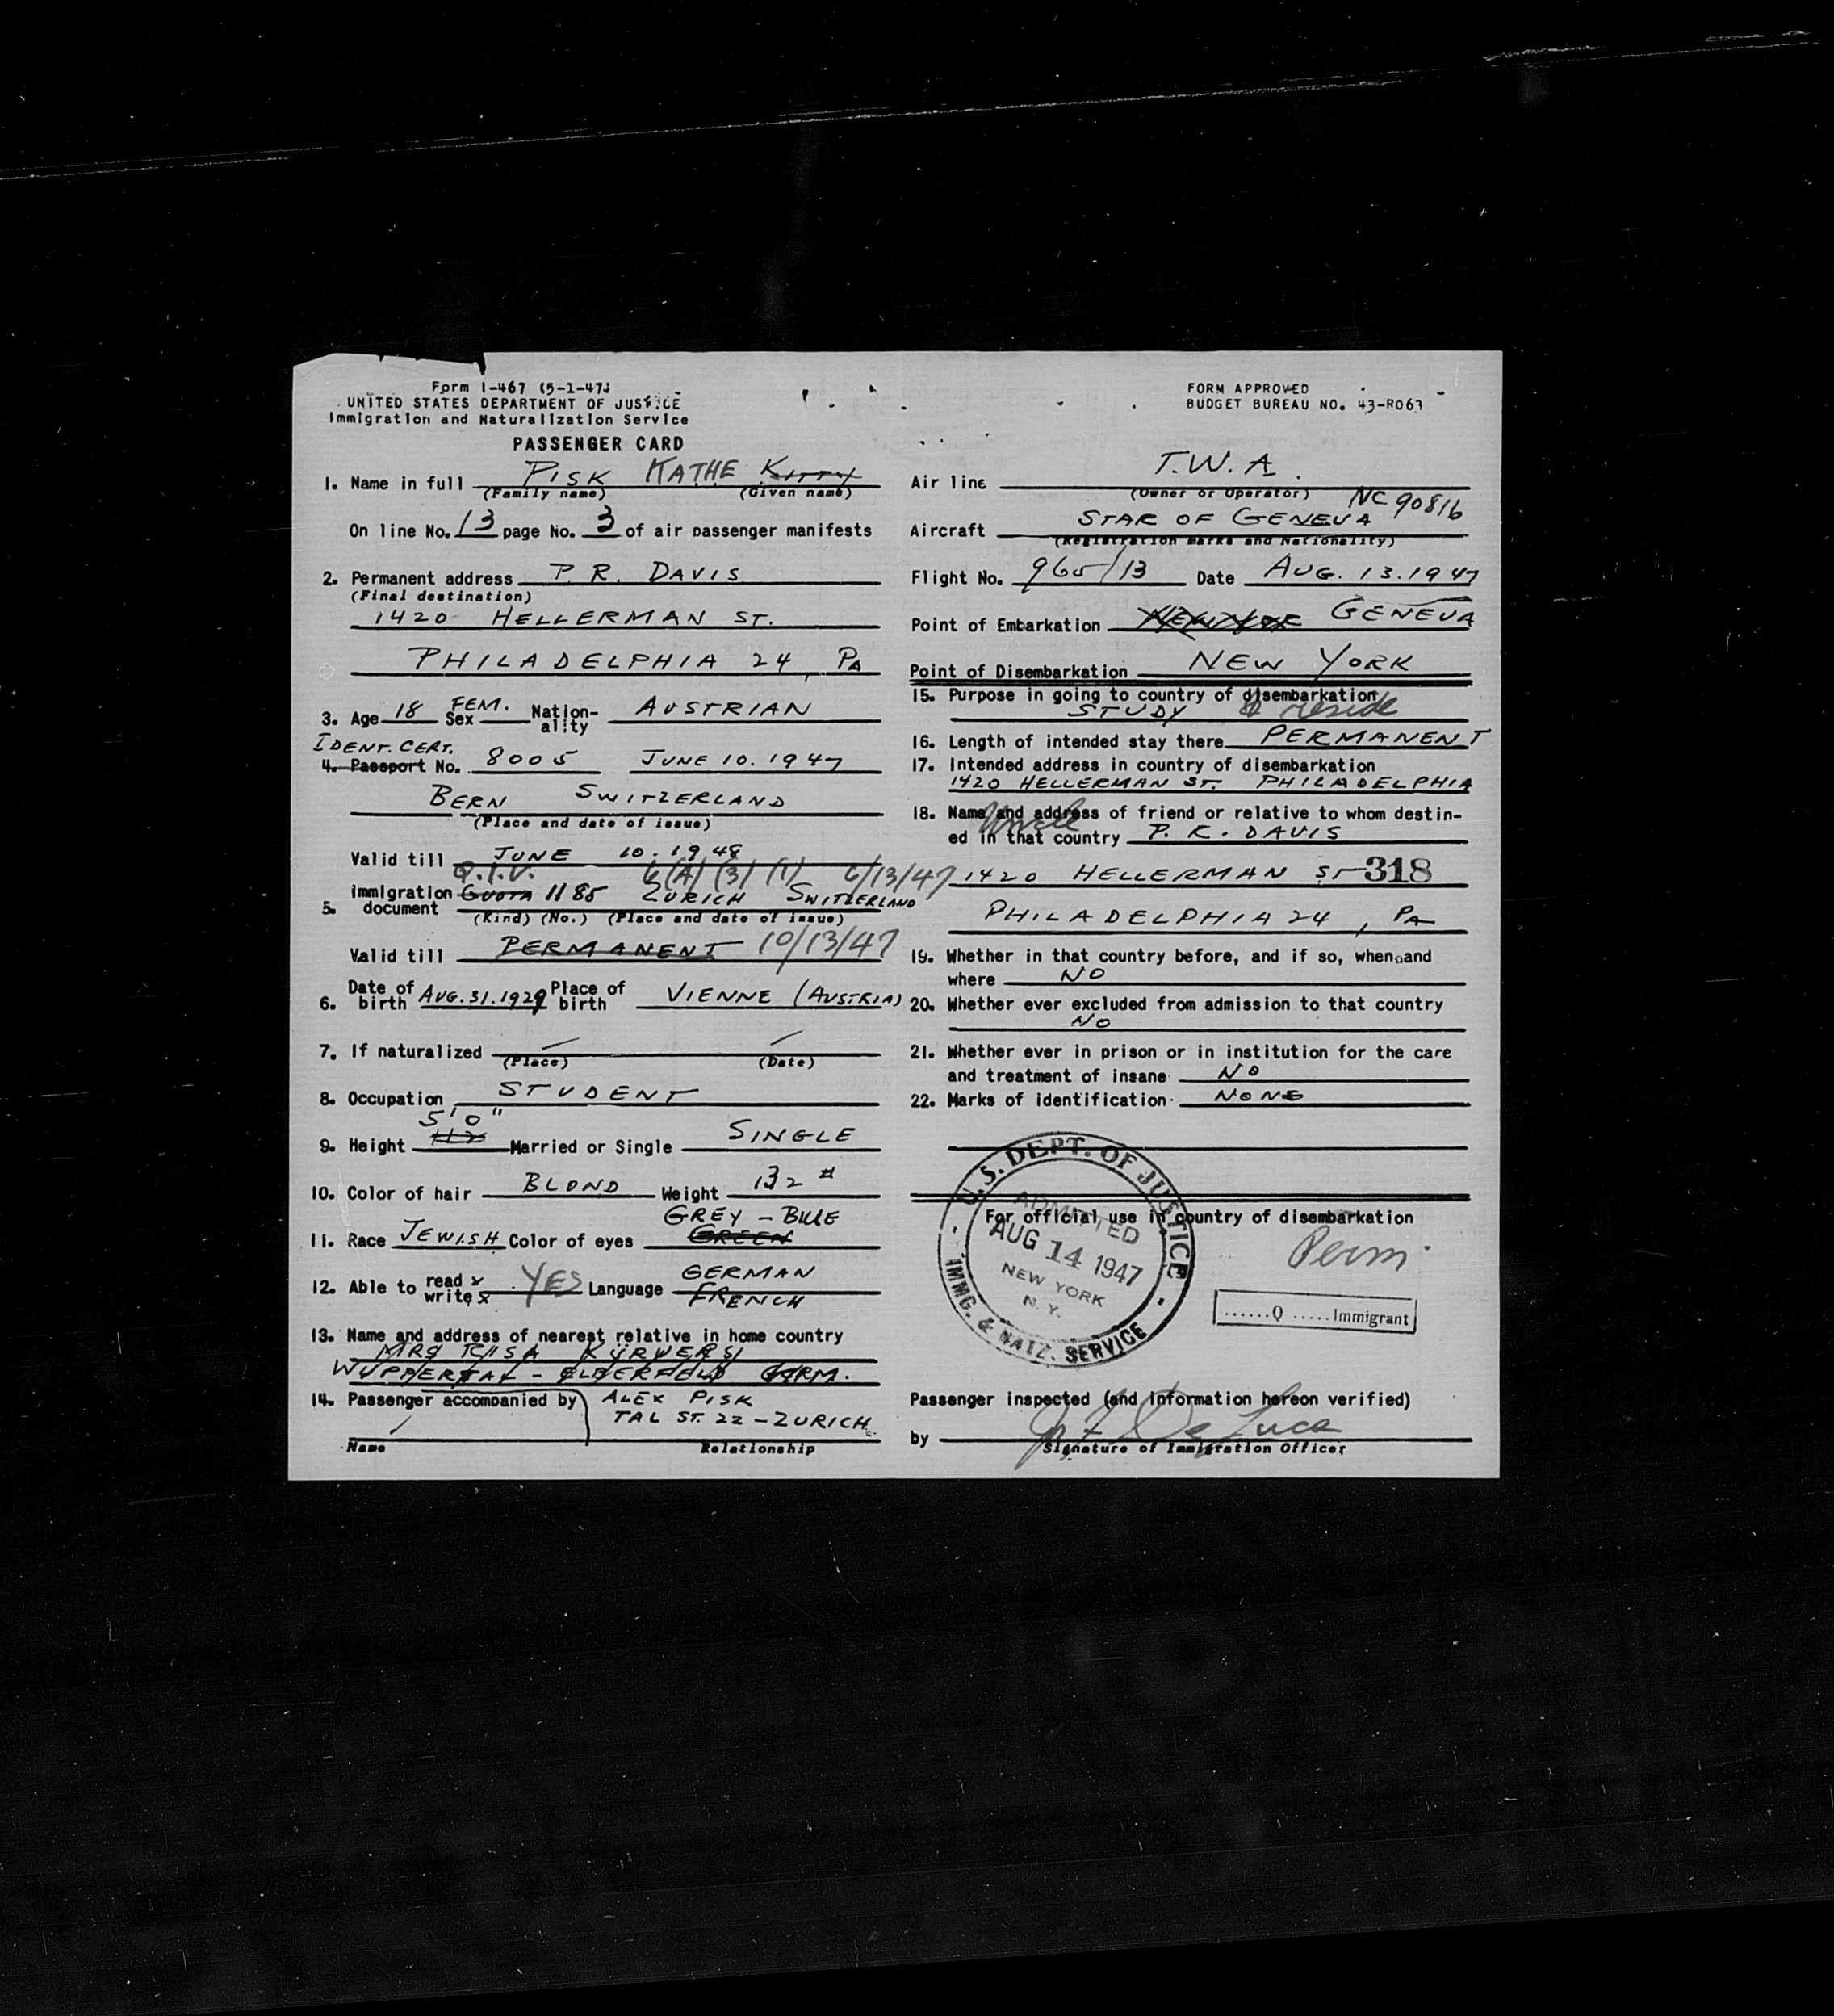 Form I-467 (5-1-47)
UNITED STATES DEPARTMENT OF JUSTICE
Immigration and Naturalization Service
PASSENGER CARD
1. Name in full PISK KATHE KITTY
(Family name) (Given name)
On line No. 13 page No. 3 of air passenger manifests
2. Permanent address P. R. DAVIS
(Final destination)
1420 HELLERMAN ST.
PHILADELPHIA 24, PA
3. Age 18 Sex FEM. Nation-ality AUSTRIAN
IDENT. CERT.
4. Passport No. 8005 JUNE 10. 1947
BERN SWITZERLAND
(Place and date of issue)
Valid till JUNE 10. 1948
Q.I.V. 6(A)(3)(1) 6/13/47
5. Immigration document QUOTA 1185 ZURICH SWITZERLAND
(Kind) (No.) (Place and date of issue)
Valid till PERMANENT 10/13/47
6. Date of birth AUG. 31. 1929 Place of birth VIENNE (AUSTRIA)
7. If naturalized
(Place) (Date)
8. Occupation STUDENT
5'0"
9. Height Married or Single SINGLE
10. Color of hair BLOND Weight 132 #
GREY - BLUE
11. Race JEWISH Color of eyes GREEN
12. Able to read x write x YES Language GERMAN
FRENCH
13. Name and address of nearest relative in home country
MRS
WUPPERTAL - ELBERFELD GERM.
14. Passenger accompanied by ALEX PISK
TAL ST. 22 - ZURICH
Name Relationship
FORM APPROVED
BUDGET BUREAU NO. 43-R063
Air line T.W.A.
(Owner or Operator) NC 90816
Aircraft STAR OF GENEVA
(Registration marks and Nationality)
Flight No. 965/13 Date AUG. 13. 1947
Point of Embarkation GENEVA
Point of Disembarkation NEW YORK
15. Purpose in going to country of disembarkation
STUDY & reside
16. Length of intended stay there PERMANENT
17. Intended address in country of disembarkation
1420 HELLERMAN ST. PHILADELPHIA
18. Name and address of friend or relative to whom destin-
Uncle
ed in that country P. R. DAVIS
1420 HELLERMAN ST 318
PHILADELPHIA 24, PA
19. Whether in that country before, and if so, when and
where NO
20. Whether ever excluded from admission to that country
NO
21. Whether ever in prison or in institution for the care
and treatment of insane NO
22. Marks of identification NONE
For official use in country of disembarkation
U.S. DEPT. OF JUSTICE
ADMITTED
AUG 14 1947
NEW YORK
N. Y.
IMMG. & NATZ. SERVICE
Perm.
......Q.....Immigrant
Passenger inspected (and information hereon verified)
by De Luca
Signature of Immigration Officer